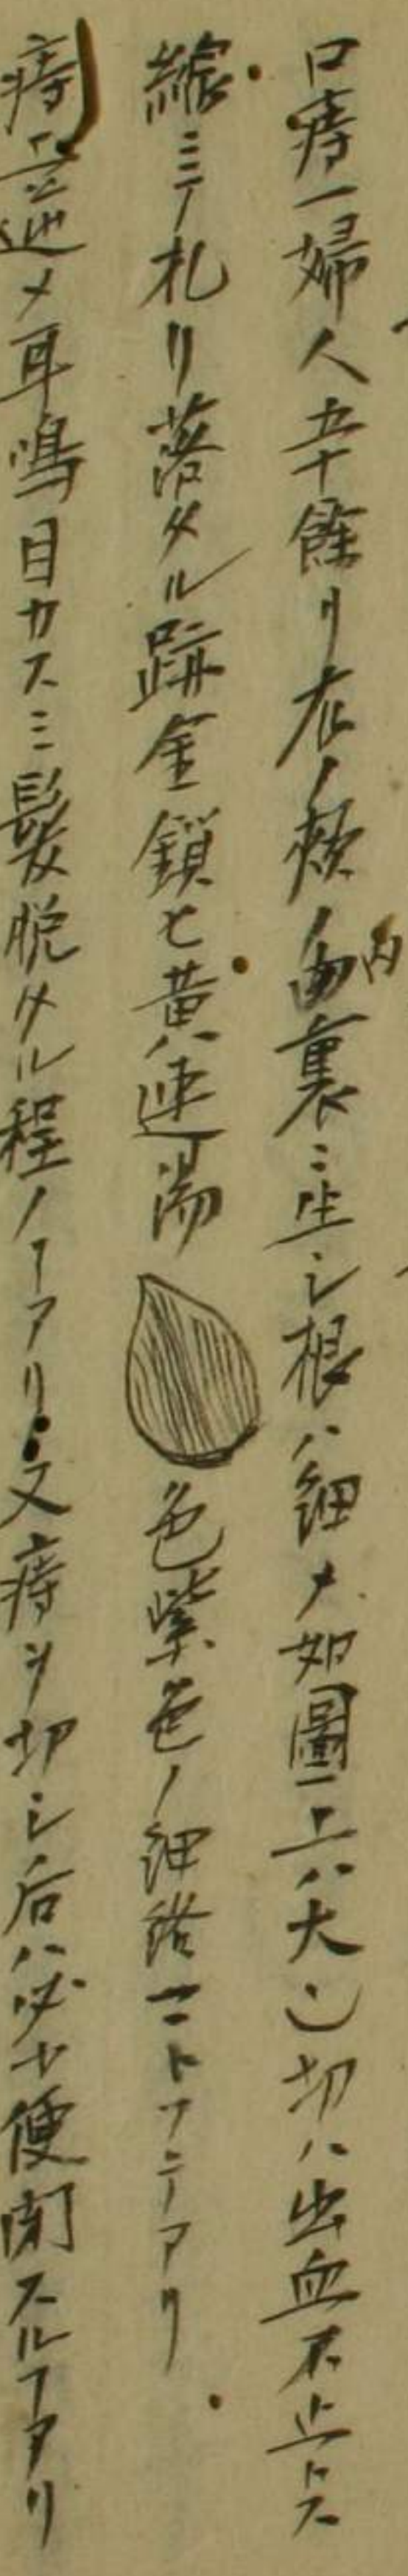 口痔一婦人五十餘リ左ノ頬ノ内裏ニ生シ根ハ細メ如圖上ハ大也切ハ出血不止トス
線ニテ札リ落タル跡金鎖匕黄連湯 色紫色ノ細絡マトフテアリ
痔上逆メ耳鳴目カスミ髪脱タル程ノヿアリ又痔ヲ切シ后ハ必少便閉スルヿアリ